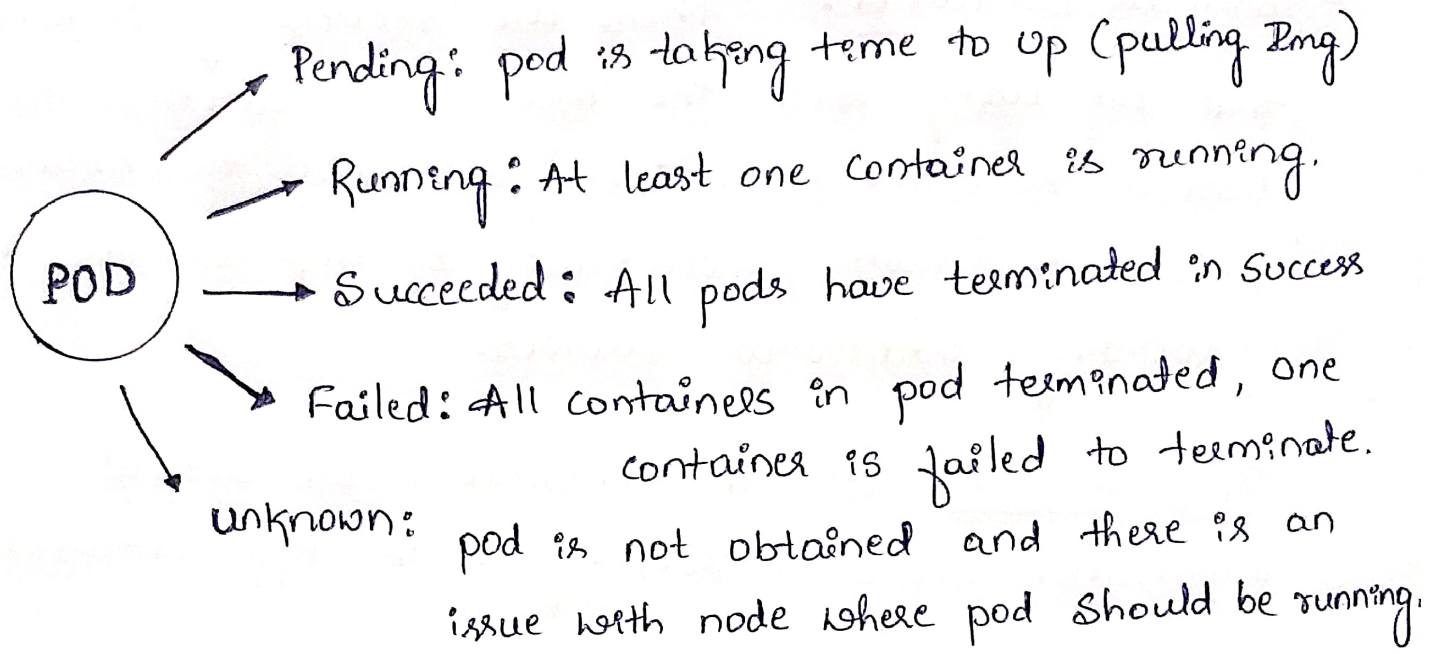 Pending: pod is taking time to up (pulling Img)
Running: At least one container is running.
POD
Succeeded: All pods have terminated in Success
Failed: All containers in pod terminated, one
container is failed to terminate.
unknown:
pod is not obtained and there is an
issue with node where pod should be running.